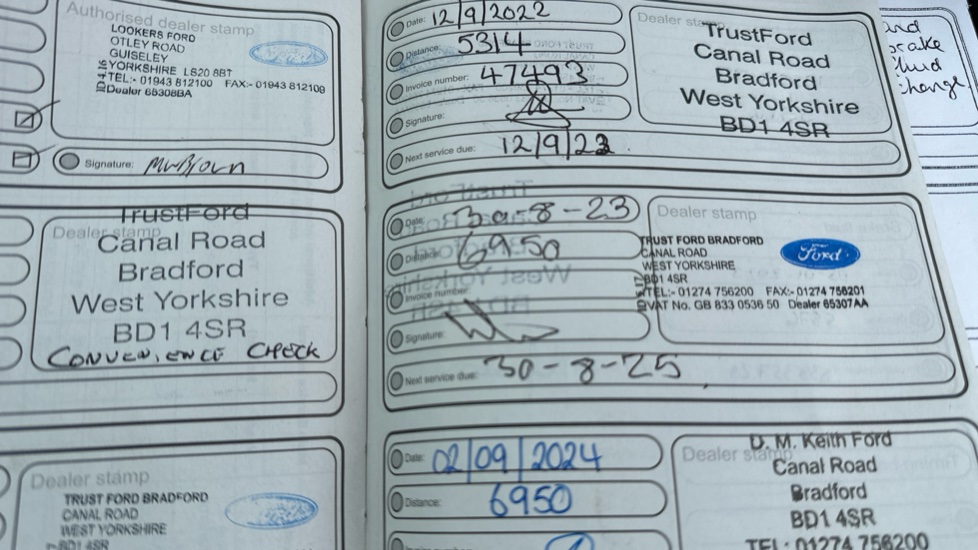 Authorised dealer stamp
LOOKERS FORD
OTLEY ROAD
GUISELEY
YORKSHIRE LS20 8BT
TEL:- 01943 812100 FAX:- 01943 812109
Dealer 65308BA
Signature:
TrustFord
Dealer stamp
Canal Road
Bradford
West Yorkshire
BD1 4SR
CONVENIENCE CHECK
Dealer stamp
TRUST FORD BRADFORD
CANAL ROAD
WEST YORKSHIRE
BD1 4SR
Date: 12/9/2022
Distance: 5314
Invoice number: 47493
Signature:
Next service due: 12/9/23
Dealer stamp
TrustFord
Canal Road
Bradford
West Yorkshire
BD1 4SR
Date: 30-8-23
Distance: 6950
Invoice number:
Signature:
Next service due: 30-8-25
Dealer stamp
TRUST FORD BRADFORD
CANAL ROAD
WEST YORKSHIRE
BD1 4SR
TEL:- 01274 756200 FAX:- 01274 756201
VAT No. GB 833 0536 50 Dealer 65307AA
Ford
Date: 02/09/2024
Distance: 6950
D. M. Keith Ford
Dealer stamp
Canal Road
Bradford
BD1 4SR
TEL: 01274 756200
brake
fluid
change